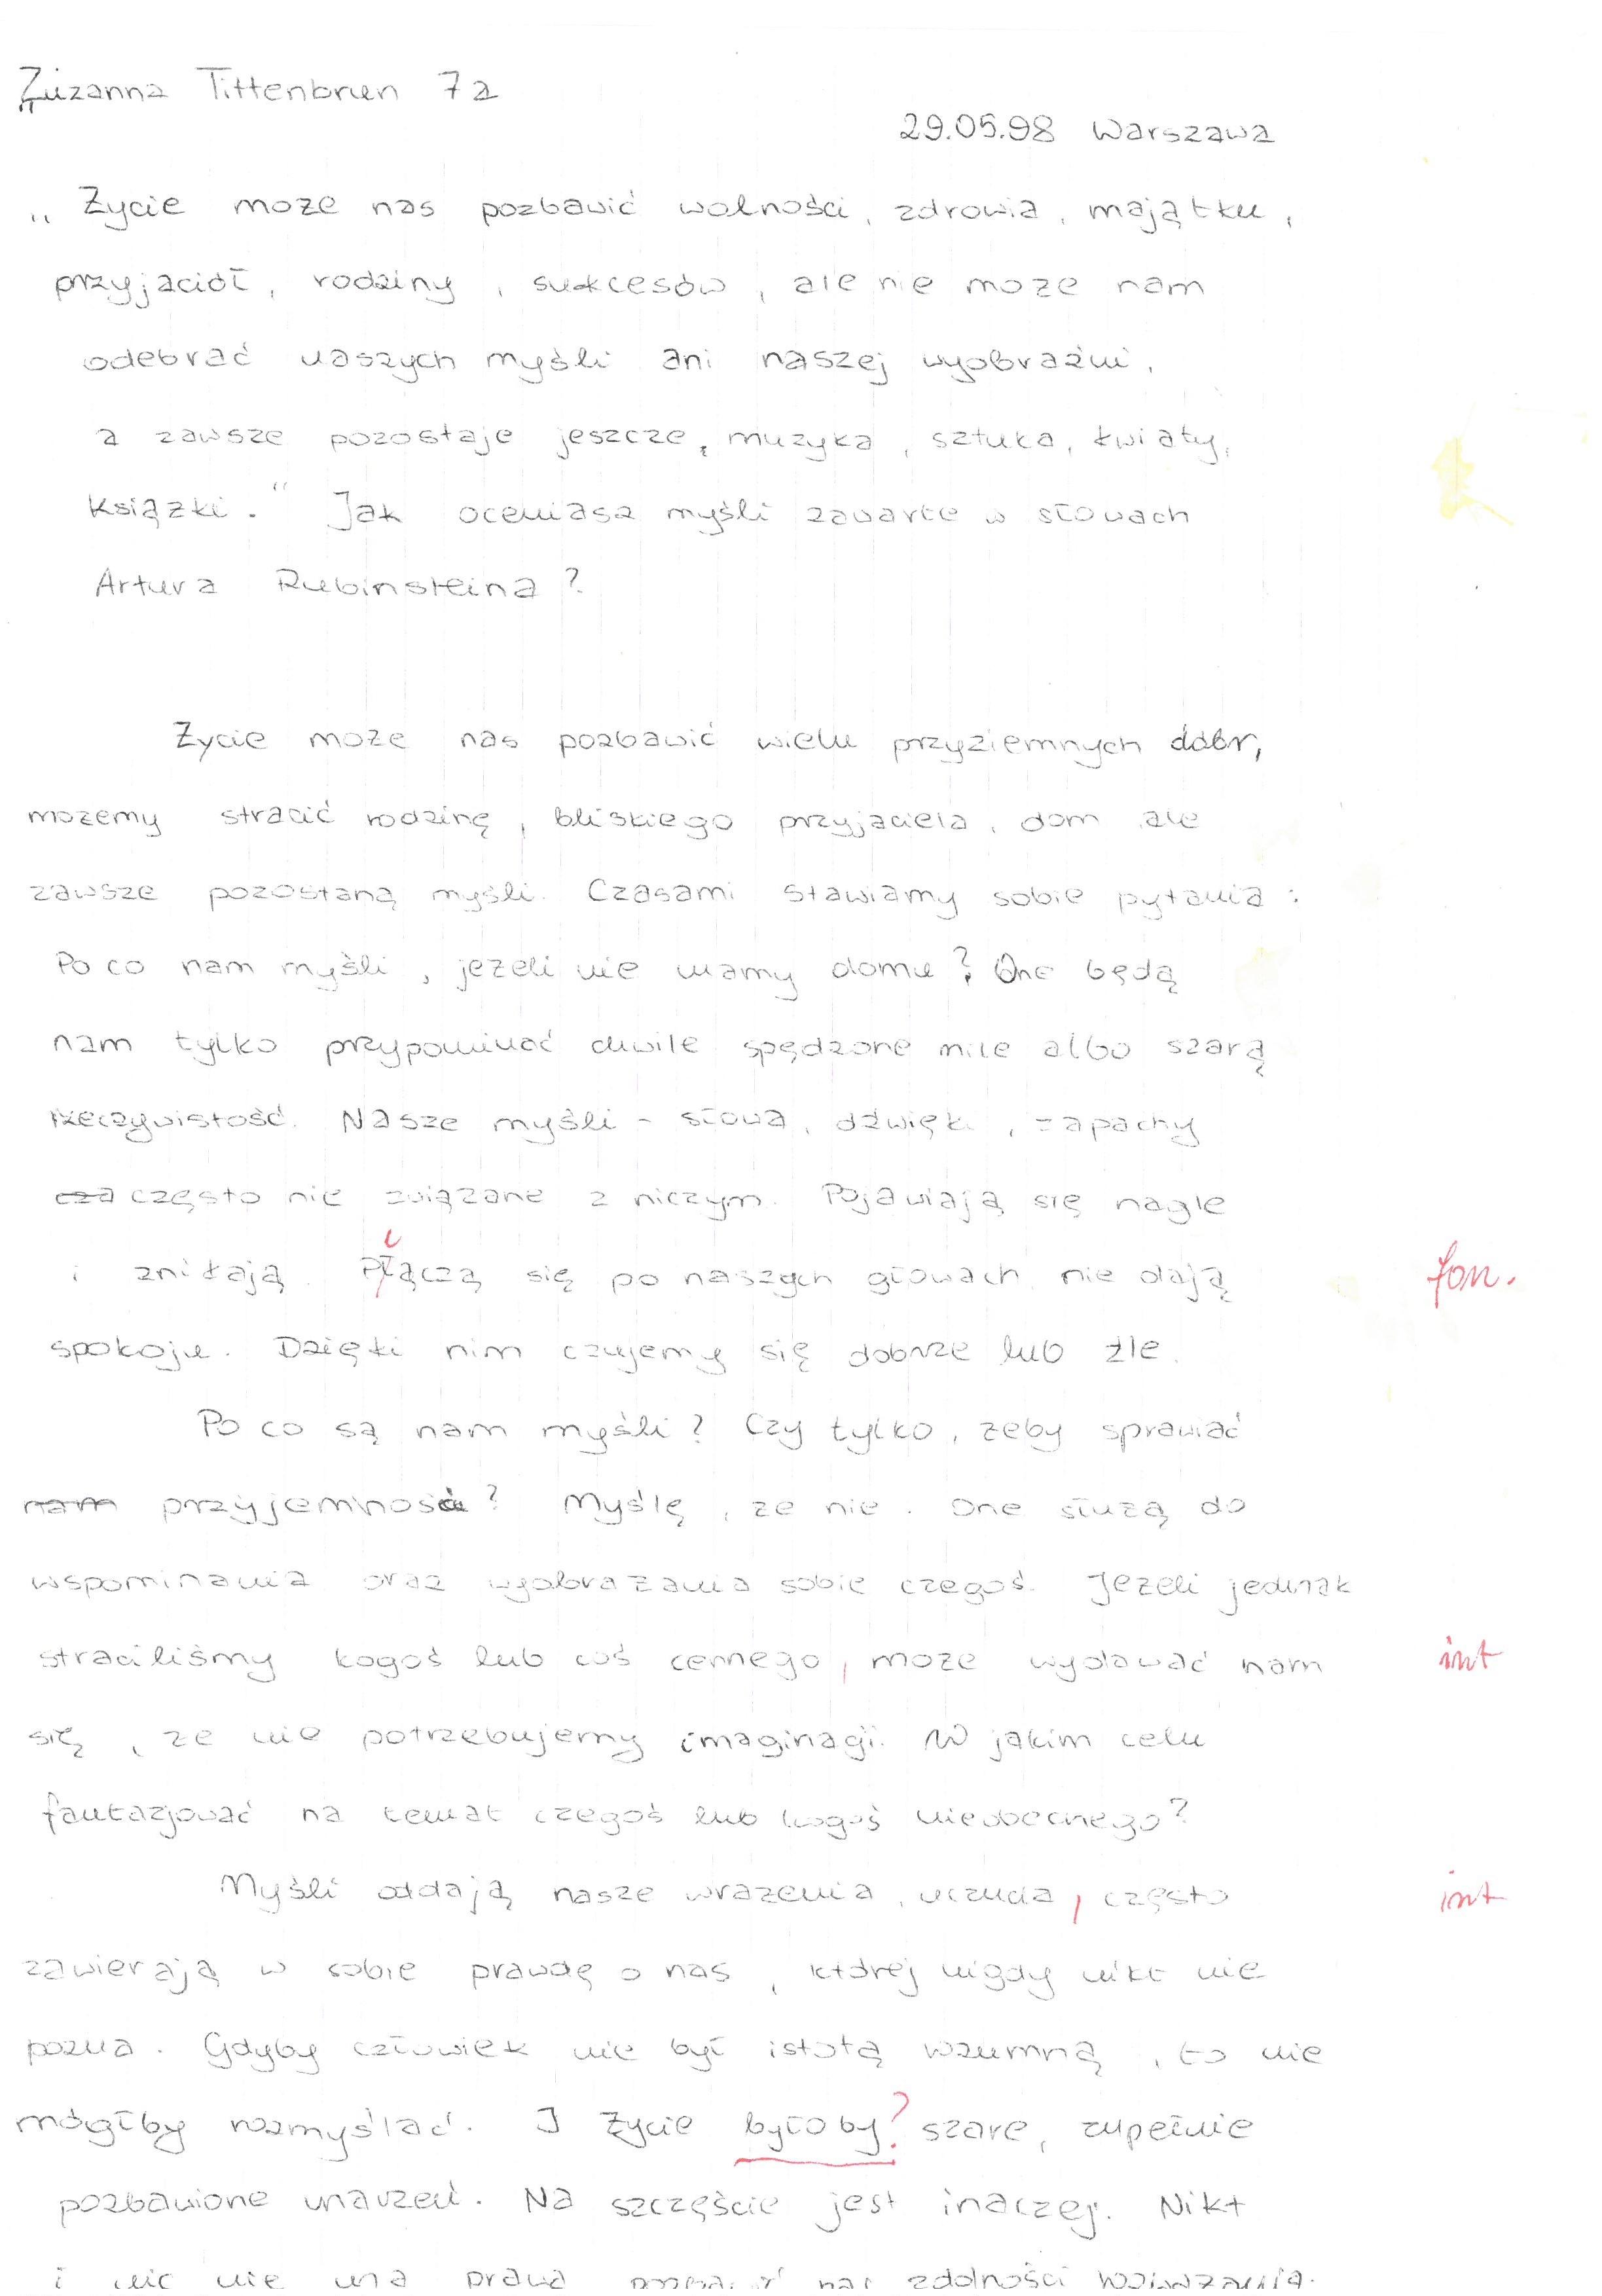 Zuzanna Tittenbrun 7a
29.05.98 Warszawa
„Życie może nas pozbawić wolności, zdrowia, majątku,
przyjaciół, rodziny, sukcesów, ale nie może nam
odebrać naszych myśli ani naszej wyobraźni,
a zawsze pozostaje jeszcze, muzyka, sztuka, kwiaty,
książki." Jak oceniasz myśli zawarte w słowach
Artura Rubinsteina?
Życie może nas pozbawić wielu przyziemnych dóbr,
możemy stracić rodzinę, bliskiego przyjaciela, dom ale
zawsze pozostaną myśli. Czasami stawiamy sobie pytania:
Po co nam myśli, jeżeli nie mamy domu? One będą
nam tylko przypominać chwile spędzone mile albo szarą
rzeczywistość. Nasze myśli - słowa, dźwięki, zapachy
cza często nie związane z niczym. Pojawiają się nagle
i znikają. Płączą się po naszych głowach, nie dają fon.
spokoju. Dzięki nim czujemy się dobrze lub źle.
Po co są nam myśli? Czy tylko, żeby sprawiać
nam przyjemność? Myślę, że nie. One służą do
wspominania oraz wyobrażania sobie czegoś. Jeżeli jednak
straciliśmy kogoś lub coś cennego, może wydawać nam int
się, że nie potrzebujemy imaginagi. W jakim celu
fantazjować na temat czegoś lub kogoś nieobecnego?
Myśli oddają nasze wrażenia, uczucia, często int
zawierają w sobie prawdę o nas, której nigdy nikt nie
pozna. Gdyby człowiek nie był istotą rozumną, to nie
mógłby rozmyślać. I życie byłoby? szare, zupełnie
pozbawione marzeń. Na szczęście jest inaczej. Nikt
i nic nie ma prawa pozbawić nas zdolności